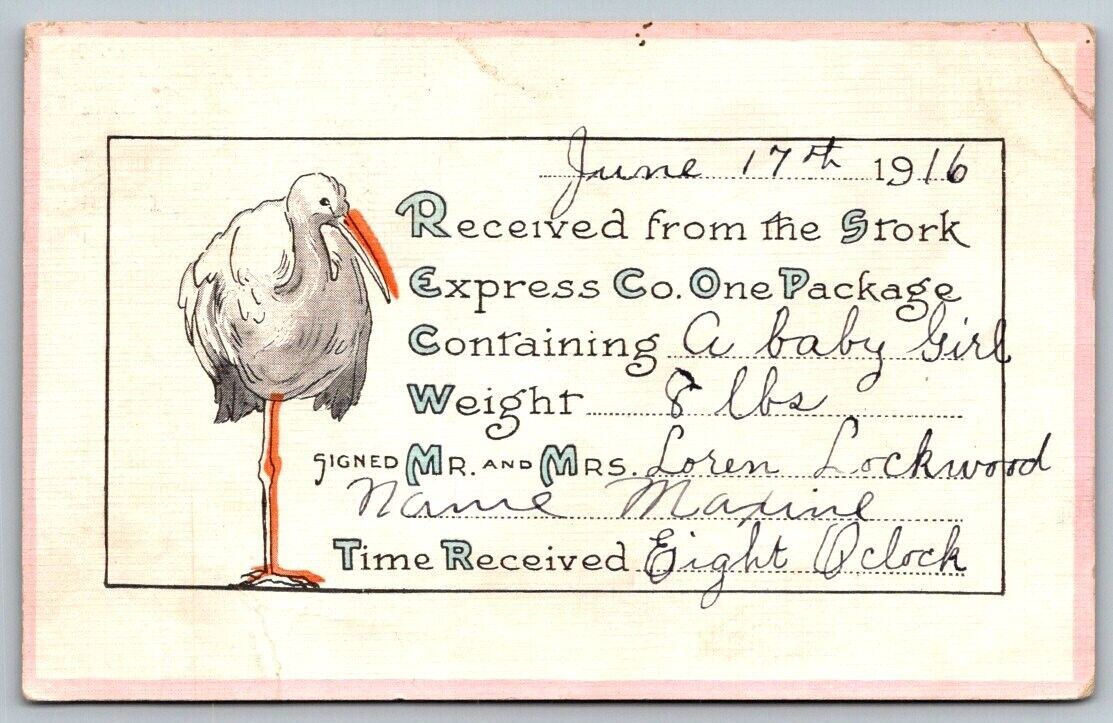 June 17th 1916
Received from the Stork
Express Co. One Package
Containing A baby Girl
Weight 8 lbs
SIGNED MR. AND MRS. Loren Lockwood
Name Maxine
Time Received Eight Oclock